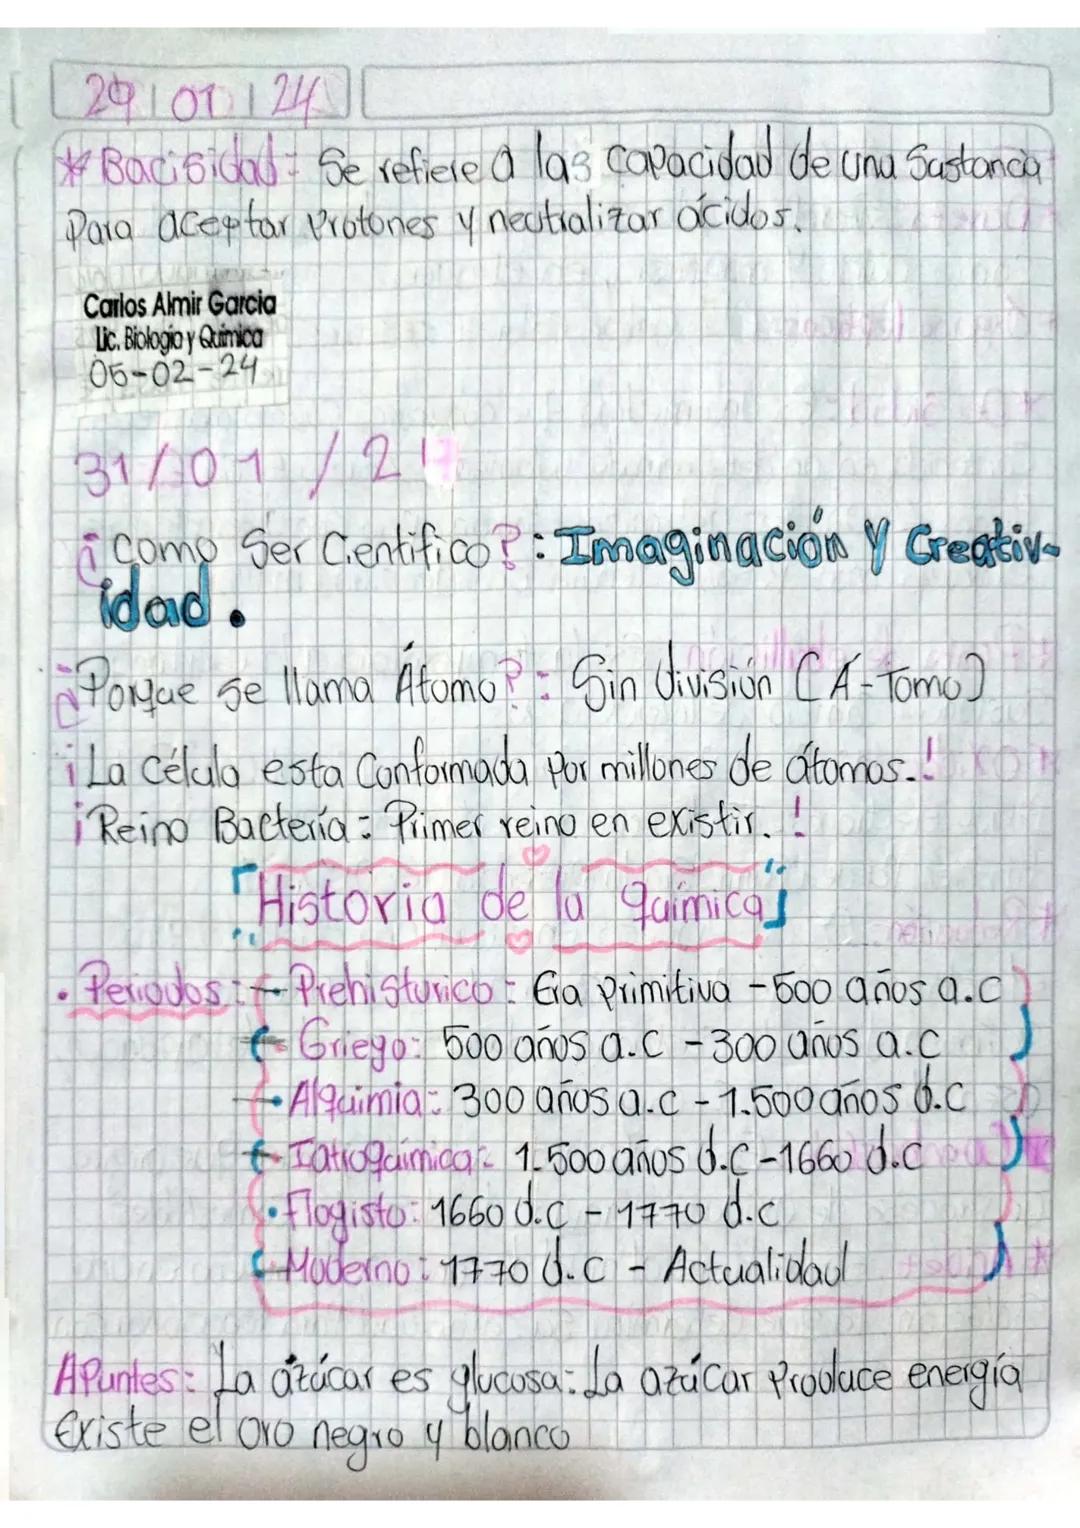 29 01 24
* Bacisidad: Se refiere a las capacidad de una Sustancia
Para aceptar Protones y neutralizar ácidos.
Carlos Almir Garcia
Lic. Biología y Química
05-02-24
31/01/2
¿Como Ser Cientifico?: Imaginación Y Creativ-
idad.
¿Porque se llama Átomo?: Sin división (A-Tomo)
¡La Célula esta Conformada Por millones de átomos.!
¡Reino Bactería: Primer reino en existir.!
Historia de la química
• Periodos: - Prehisturico: Era Primitiva - 500 años a.c
- Griego: 500 años a.c - 300 años a.c
• Alquimia: 300 años a.c - 1.500 años d.c
- Iatroquímica: 1.500 años d.c - 1660 d.c
• Flogisto: 1660 d.c - 1770 d.c
- Moderno: 1770 d.c - Actualidad
APuntes: La ázúcar es glucosa: La azúcar Produce energía
Existe el oro negro y blanco